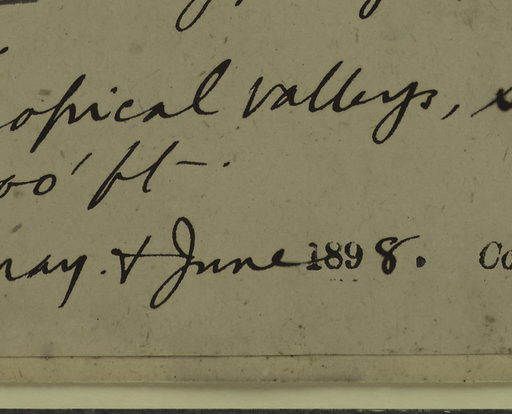 opical valleys,
00' ft.
may. & June 1898. Co